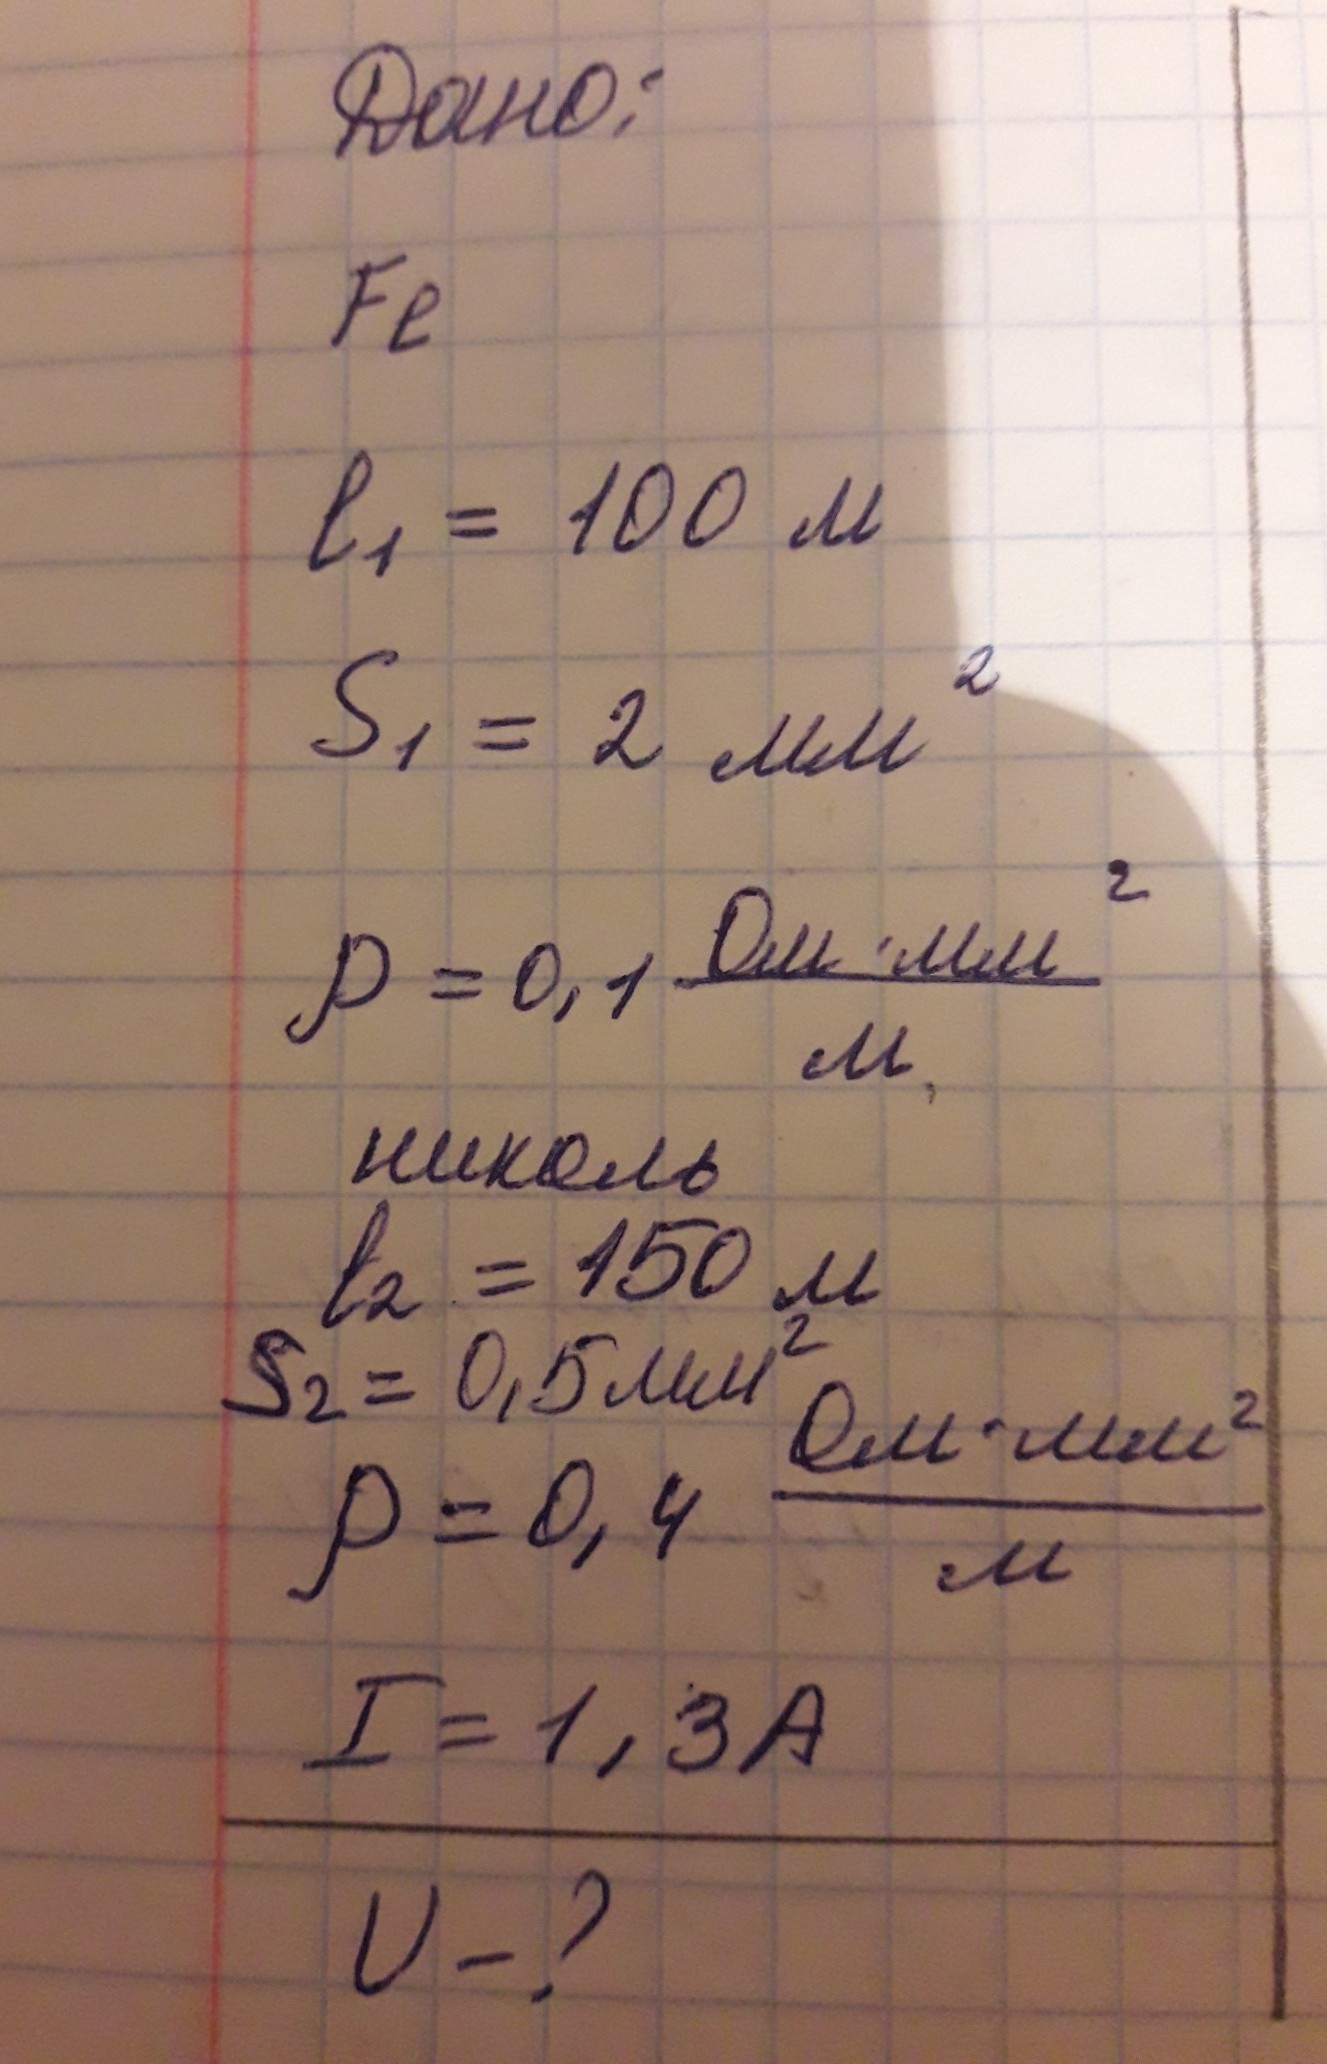 Дано:
Fe
l₁ = 100 м
S₁ = 2 мм²
ρ = 0,1 Ом·мм²/м
николь
l₂ = 150 м
S₂ = 0,5 мм²
ρ = 0,4 Ом·мм²/м
I = 1,3 А
U - ?